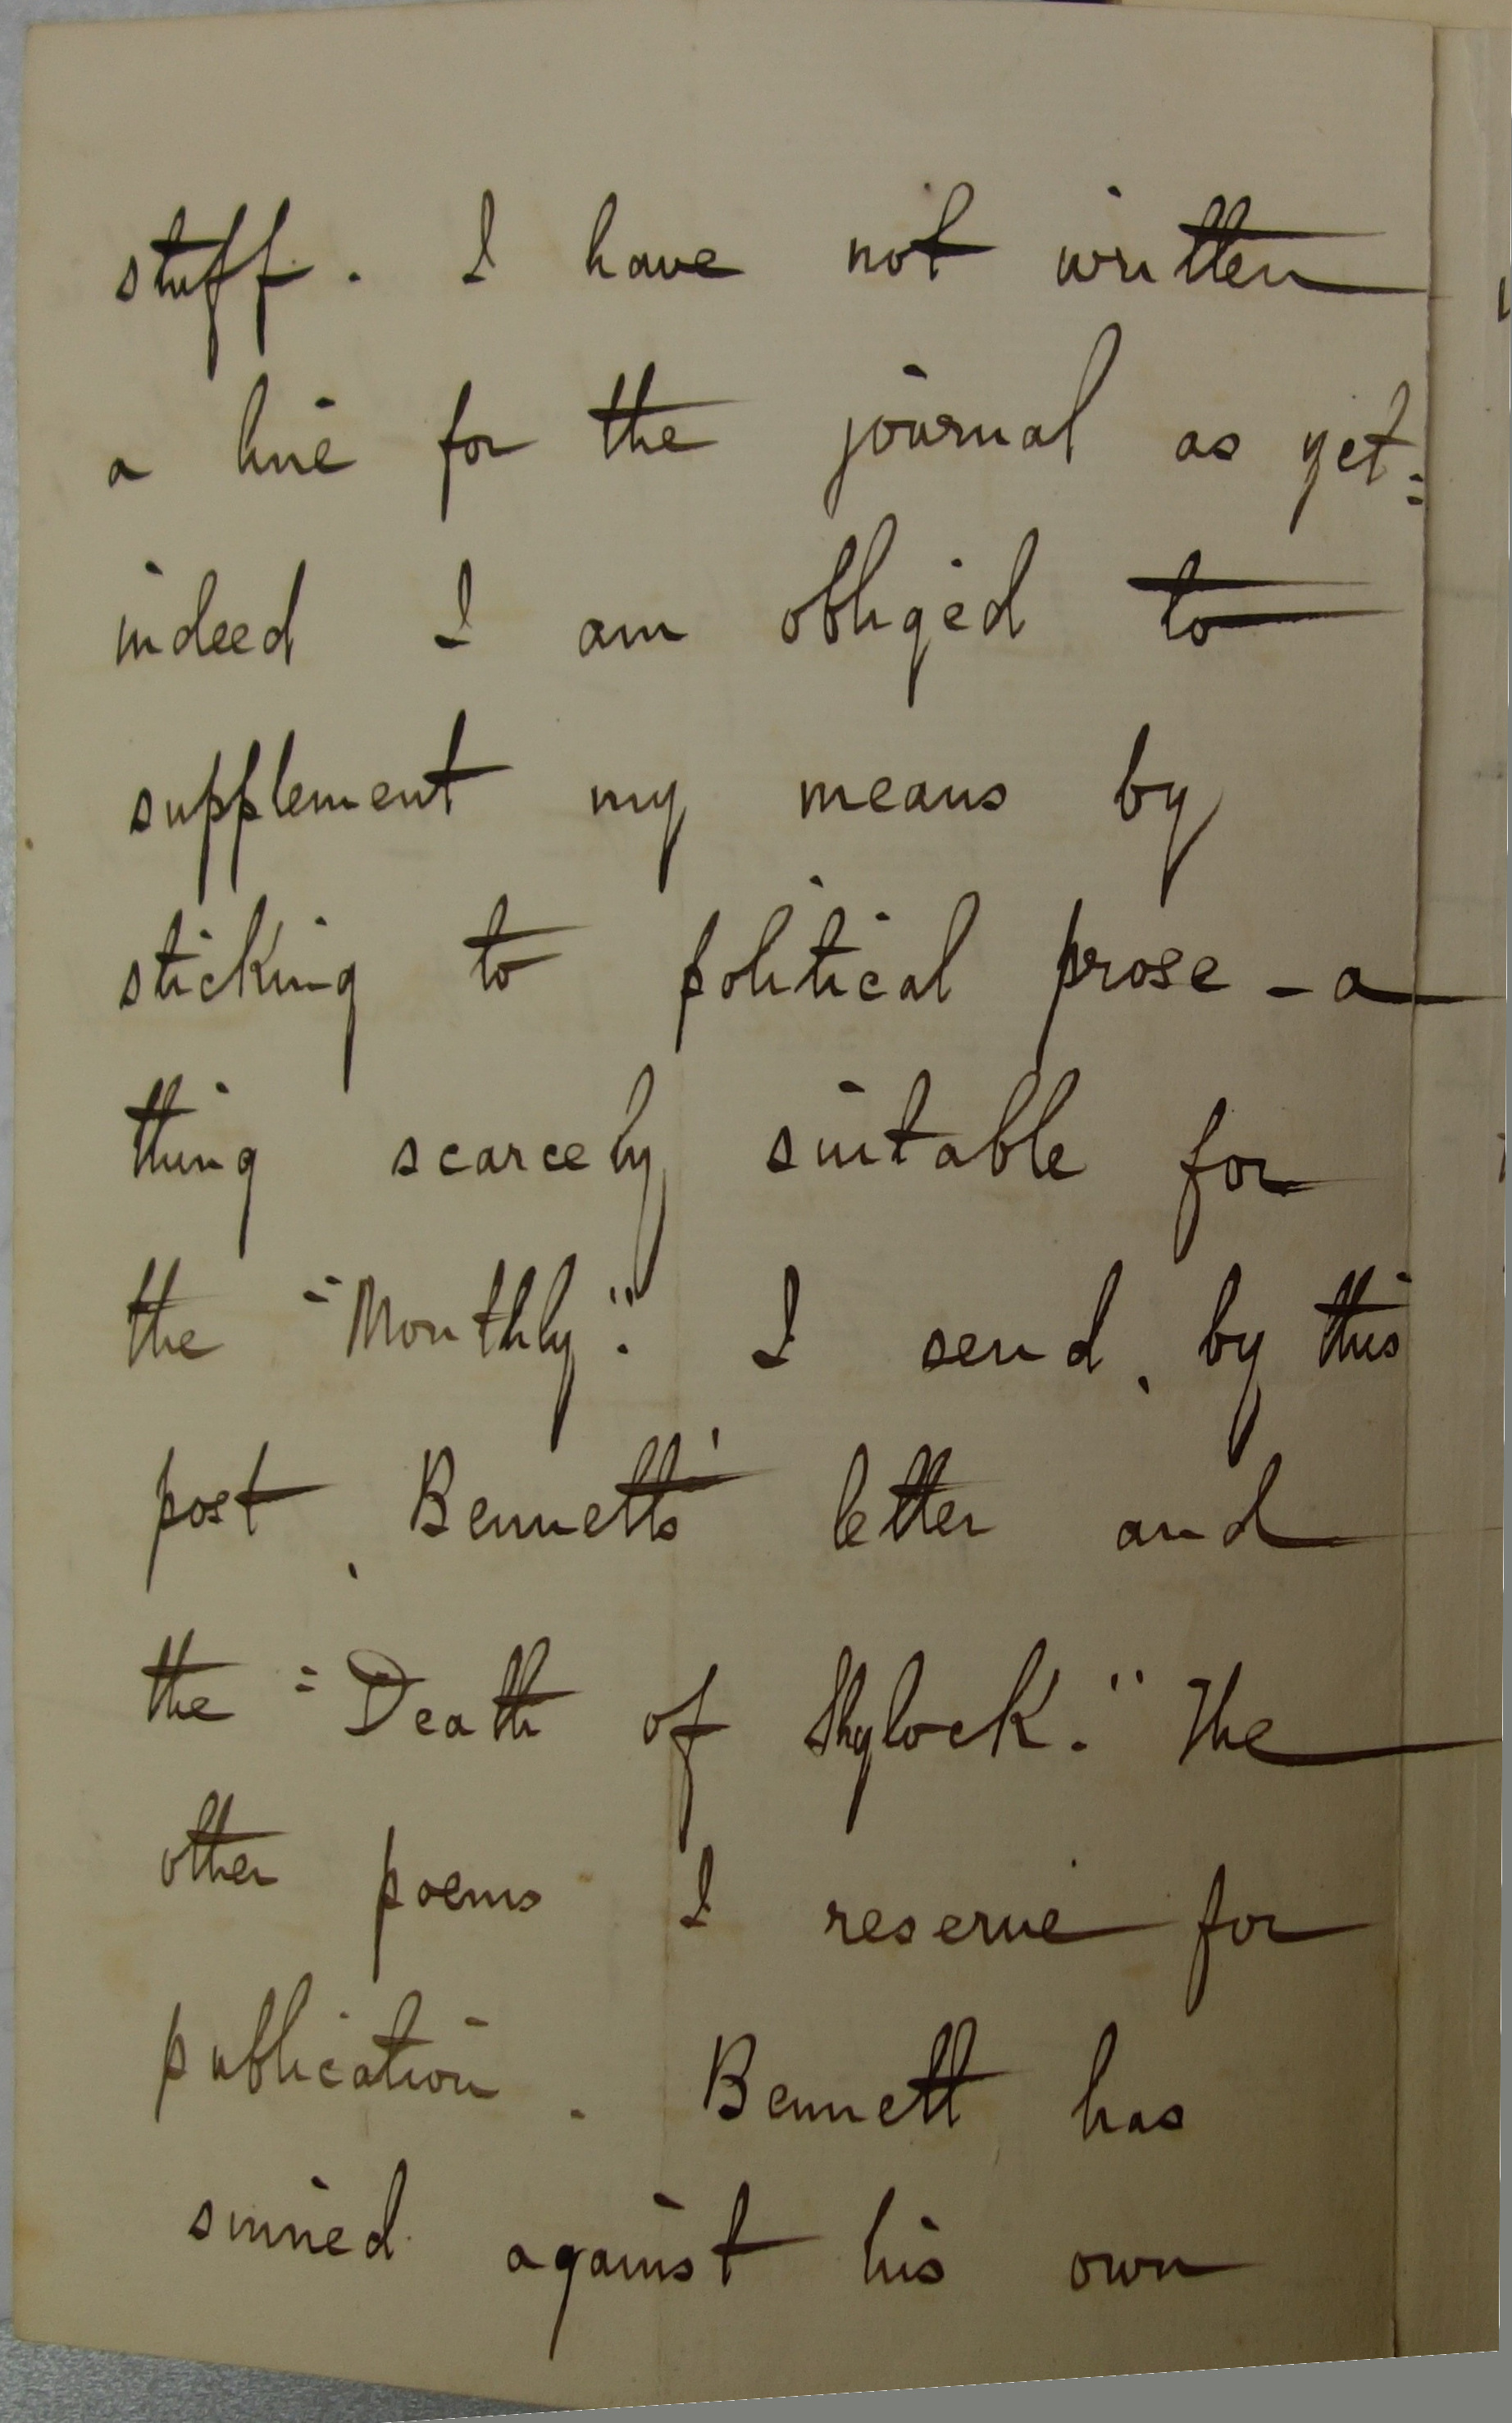 stuff. I have not written
a line for the journal as yet:
indeed I am obliged to
supplement my means by
sticking to political prose - a
thing scarcely suitable for
the "Monthly". I send, by this
post, Bennett's letter and
the "Death of Shylock." The
other poems I reserve for
publication. Bennett has
sinned against his own